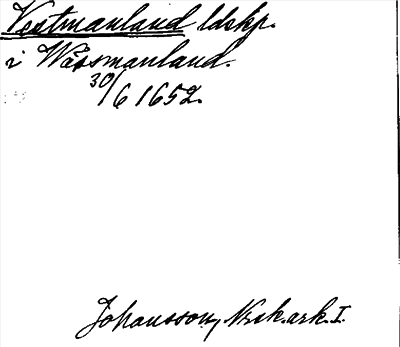 Vestmanland ldskp.
i Wässmanland.
30/6 1652.
Johansson, Nor.ark. I.